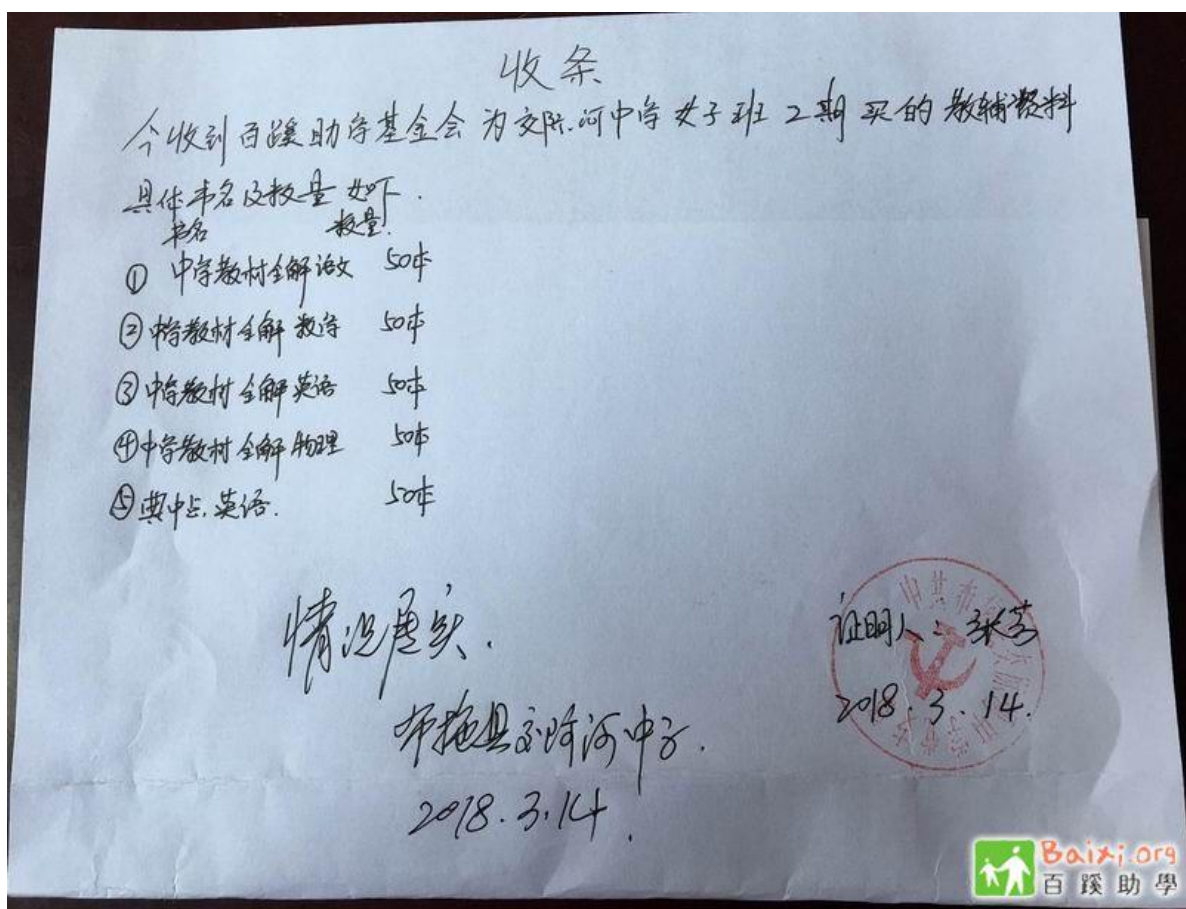 收条
今收到百蹊助学基金会为交际河中学女子班2期买的教辅资料
具体书名及数量如下.
书名 数量.
① 中学教材全解语文 50本
②中学教材全解 数学 50本
③中学教材全解英语 50本
④中学教材全解物理 50本
⑤典中点.英语. 50本
情况属实.
布拖县交际河中学.
2018.3.14.
证明人:
2018.3.14.
中共布拖
Baixi.org
百蹊助學